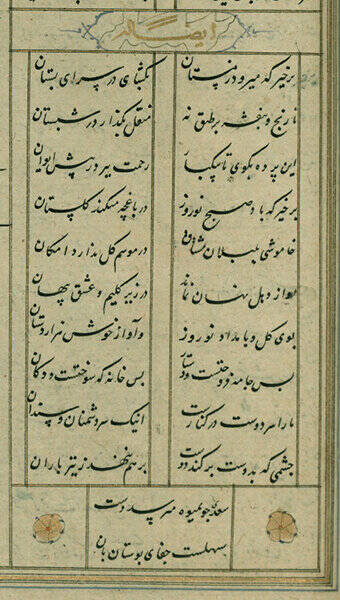 ایضاً له
برخیز که میرود زمستان بگشای در سرای بستان
نارنج و بنفشه بر طبق نه منقل بگذار در شبستان
این پرده بگوی تا بیکبار زحمت ببرد ز پیش ایوان
برخیز که باد صبح نوروز در باغچه میکند گلستان
خاموشی بلبلان مشتاق در موسم گل ندارد امکان
آواز دهل نهان نماند در زیر گلیم و عشق پنهان
بوی گل و بامداد نوروز و آواز خوش هزاردستان
بس جامه فروختست و دستار بس خانه که سوختست و دکان
ما را سر دوست در کنارست اینک سر دشمنان و سندان
چشمی که بدوست برکند دوست بر هم ننهد ز تیر باران
سعدی چو بمیوه میرسد دست
سهلست جفای بوستان بان